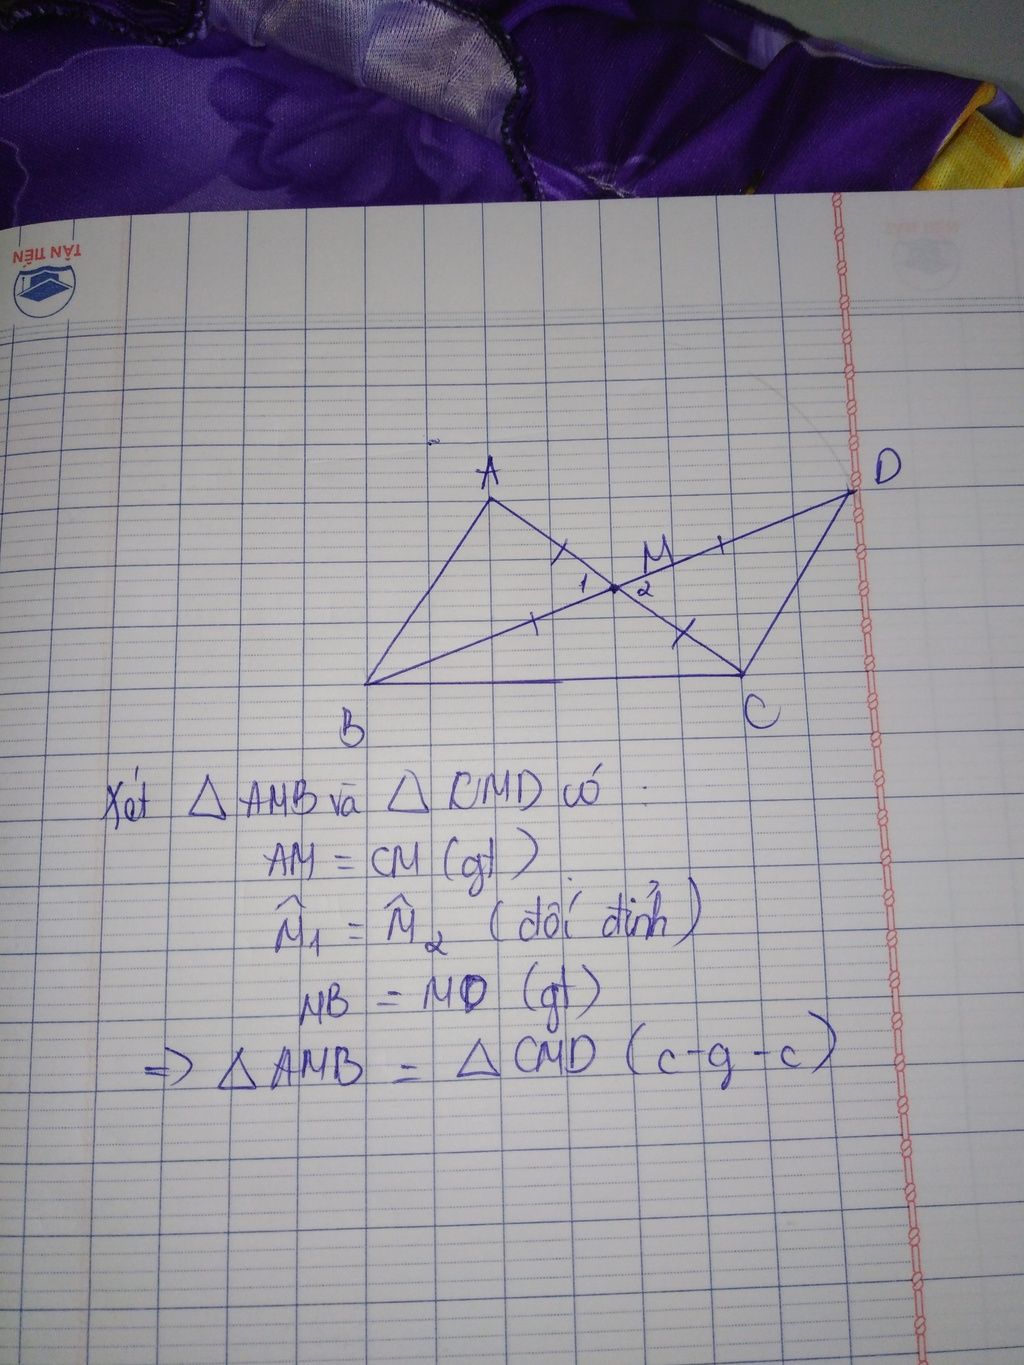 TÂN TIẾN
A
D
M
1
2
B
C
Xét △ AMB và △ CMD có :
AM = CM (gt)
M̂1 = M̂2 (đối đỉnh)
MB = MD (gt)
=> △ AMB = △ CMD (c-g-c)